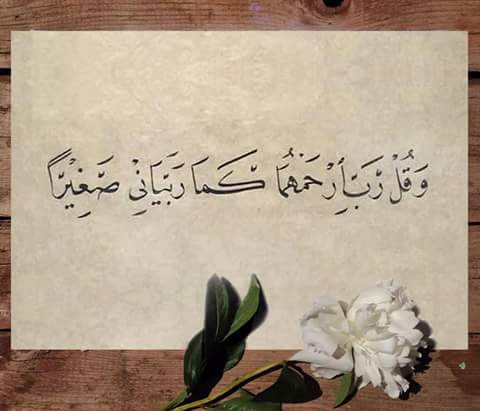 وَقُلْ رَّبِّ ٱرْحَمْهُمَا كَمَا رَبَّيَانِىْ صَغِيْرًا